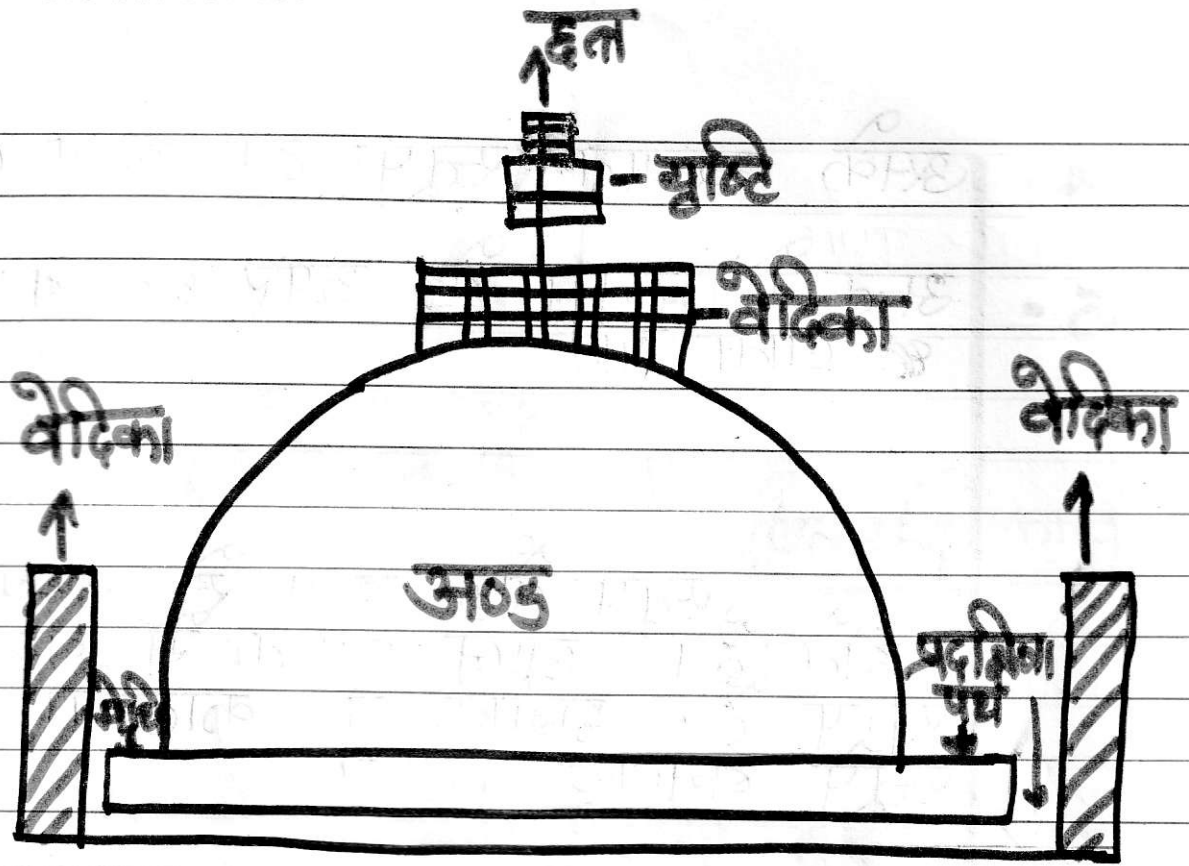 छत्र
यष्टि
वेदिका
वेदिका
वेदिका
अण्ड
मेधि
प्रदक्षिणा
पथ